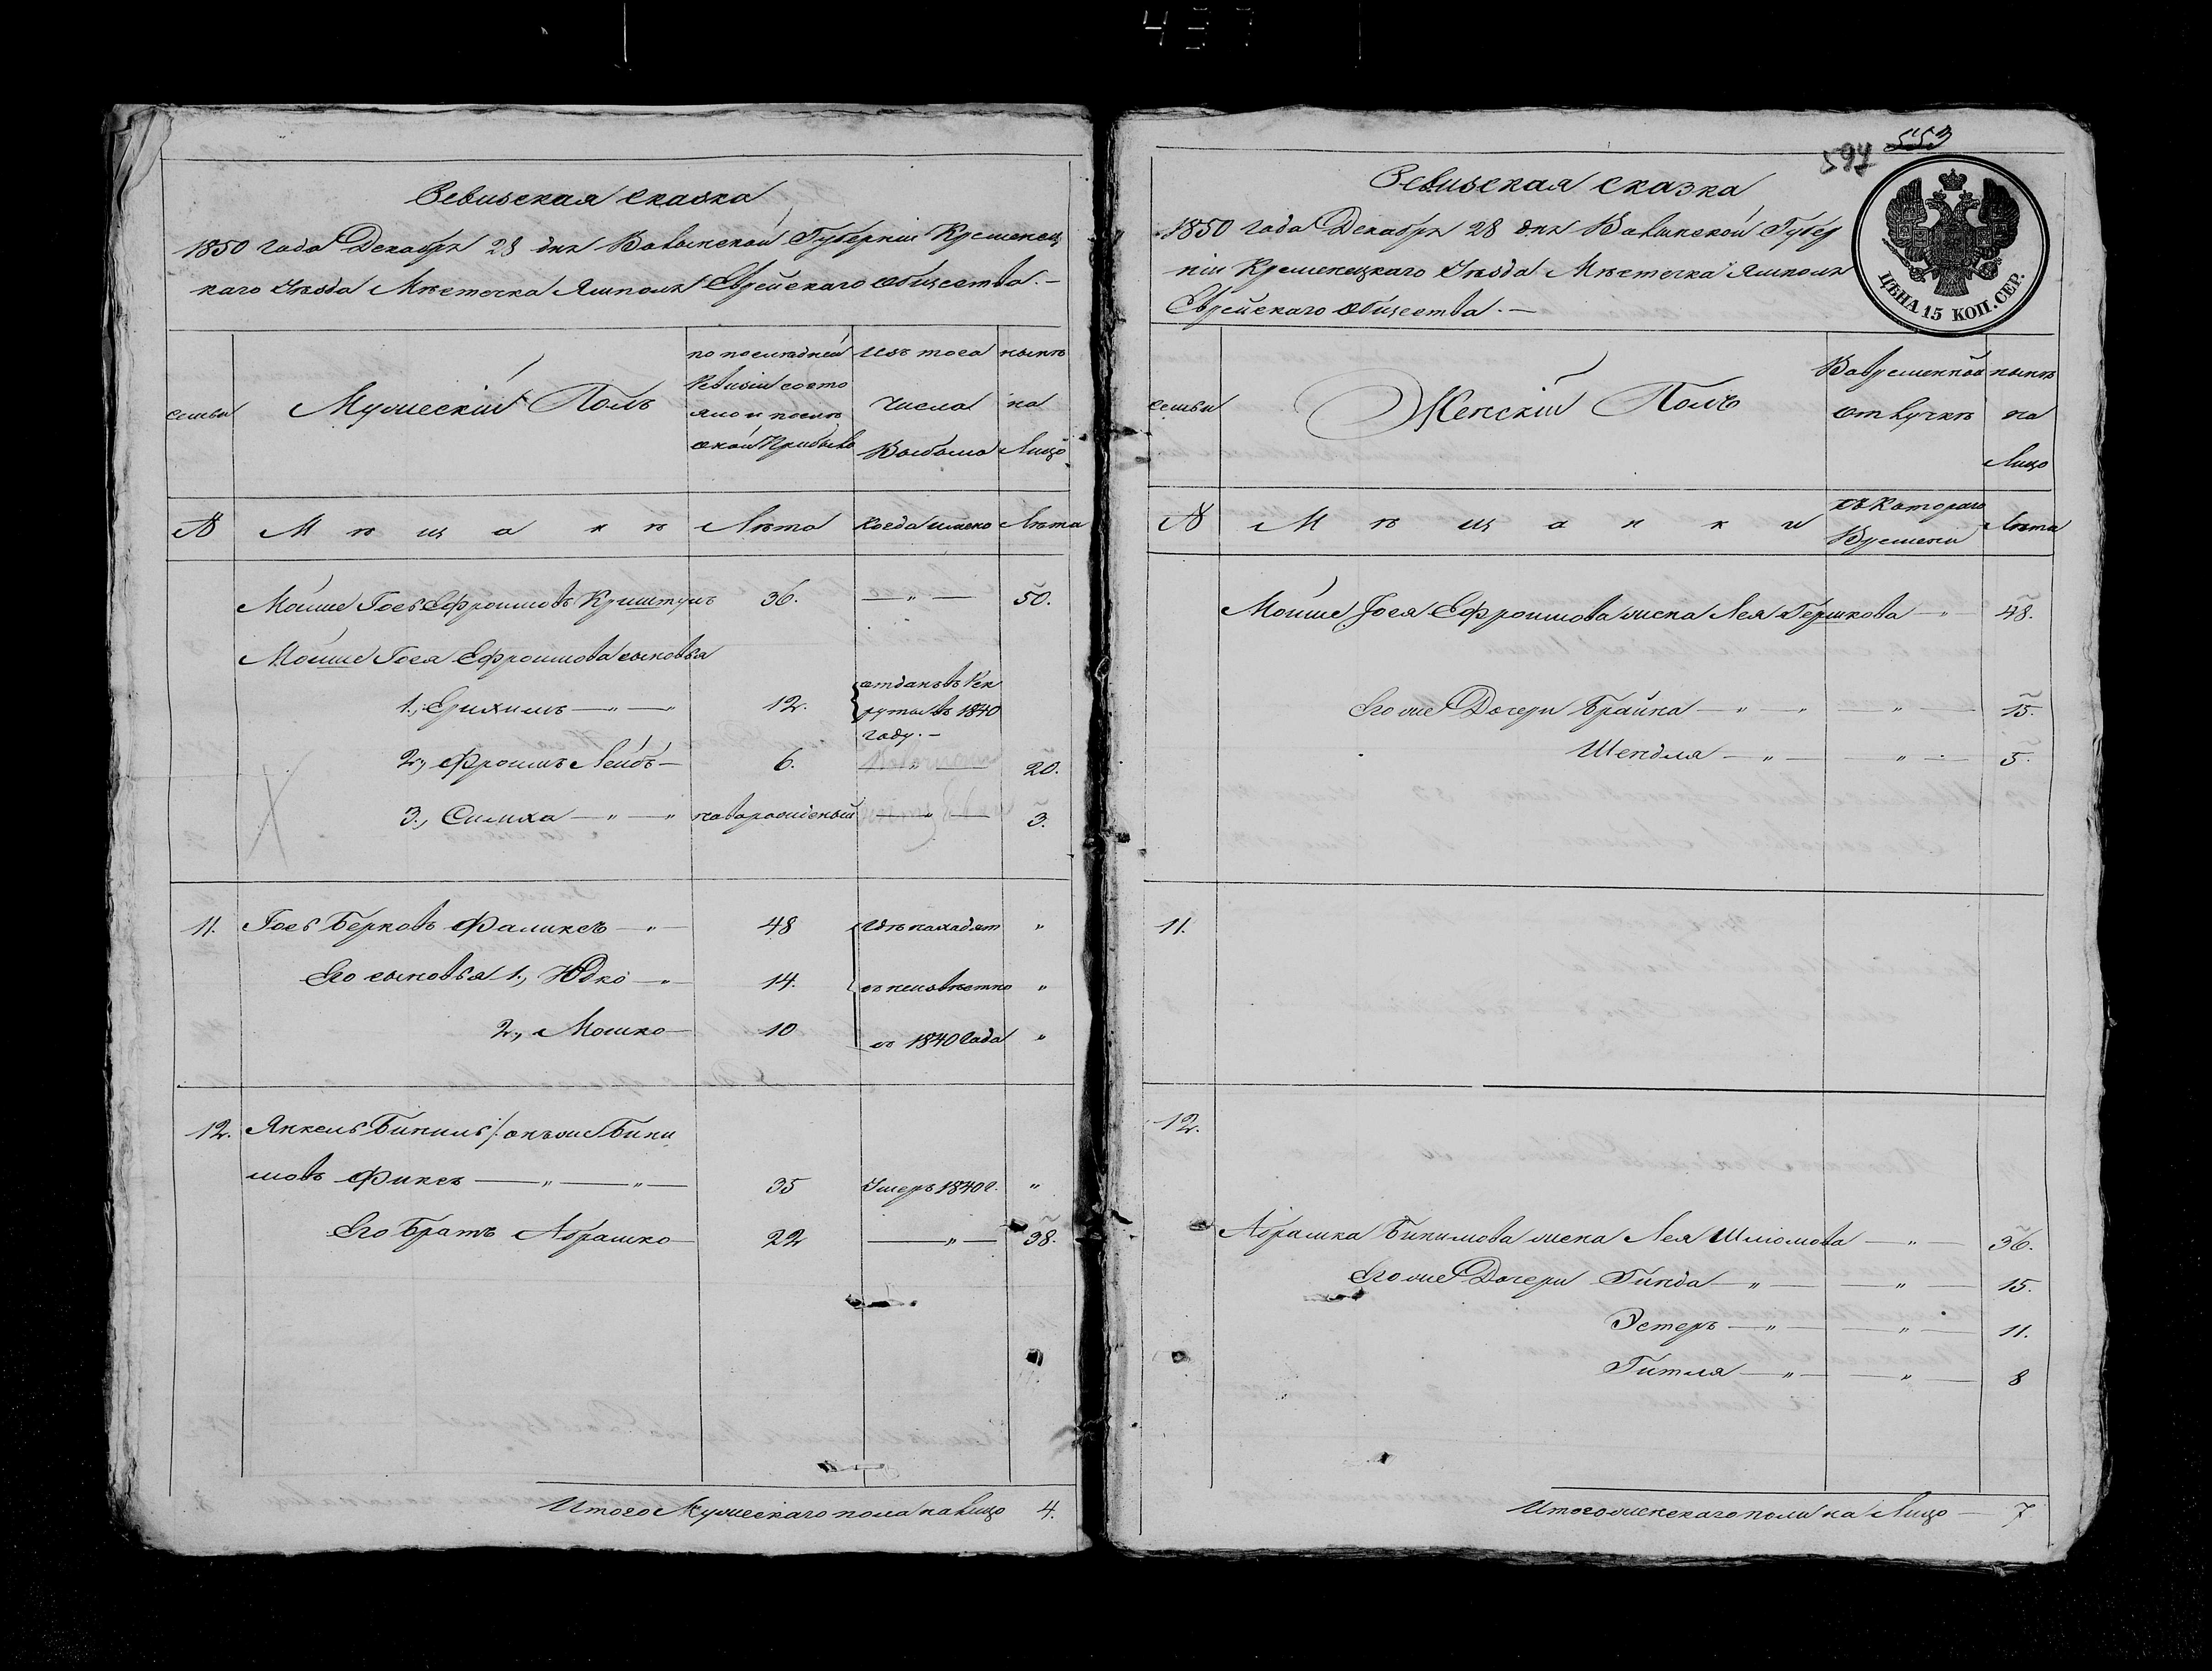 437
Ревизская сказка
1850 года Декабря 28 дня Волынской Губерніи Кременец
каго Уезда Мѣстечка Ямполя Еврейскаго общества. —
семьи
Мужескій Полъ
по последней
Ревизіи состо
яло и после
оной Прибыло
изъ того
числа
Выбыло
нынѣ
на
Лицо
№ Мѣщане Лѣта Когда имено Лѣта
Мойше Гось Ефроимовъ Криштулъ 36. — " — 50.
Мойше Гося Ефроимова сыновья
1., Ерихимъ — " — " 12. отданъ въ Рек
руты въ 1840
году. —
2., Фроимъ Лейбъ — 6. — " — 20.
3., Симха — " — " новорожденый — " — 3.
11. Гось Берковъ Фаликсъ — " — 48 где находят "
Его сыновья 1., Юдко — " — 14. ся неизвѣстно "
2., Мошко — 10 съ 1840 года "
12. Янкель Бинимъ /: онъ же Бини
мовъ Фиксъ — " — " — 35 Умеръ 1840 г. "
Его Братъ Абрашко — 22 — " — 38.
Итого Мужескаго пола на лицо 4.
597 553
Ревизская сказка
1850 года Декабря 28 дня Волынской Губер
ніи Кременецкаго Уезда Мѣстечка Ямполя
Еврейскаго общества. —
ЦѢНА 15 КОП. СЕР.
семьи
Женскій Полъ
Во временной
отлучкѣ
нынѣ
на
Лицо
№ Мѣщанки съ Котораго
Времени Лѣта
Мойше Гося Ефроимова жена Лея Гершкова — " 48.
Его же Дочери Брайна — " — " — " — 15.
Шендля — " — " — 5.
11.
12.
Абрашка Бинимова жена Лея Шлиомова — " — 36.
Его же Дочери Гинда — " — " — 15.
Эстеръ — " — " — 11.
Гитля — " — " — 8
Итого женскаго пола на Лицо — 7